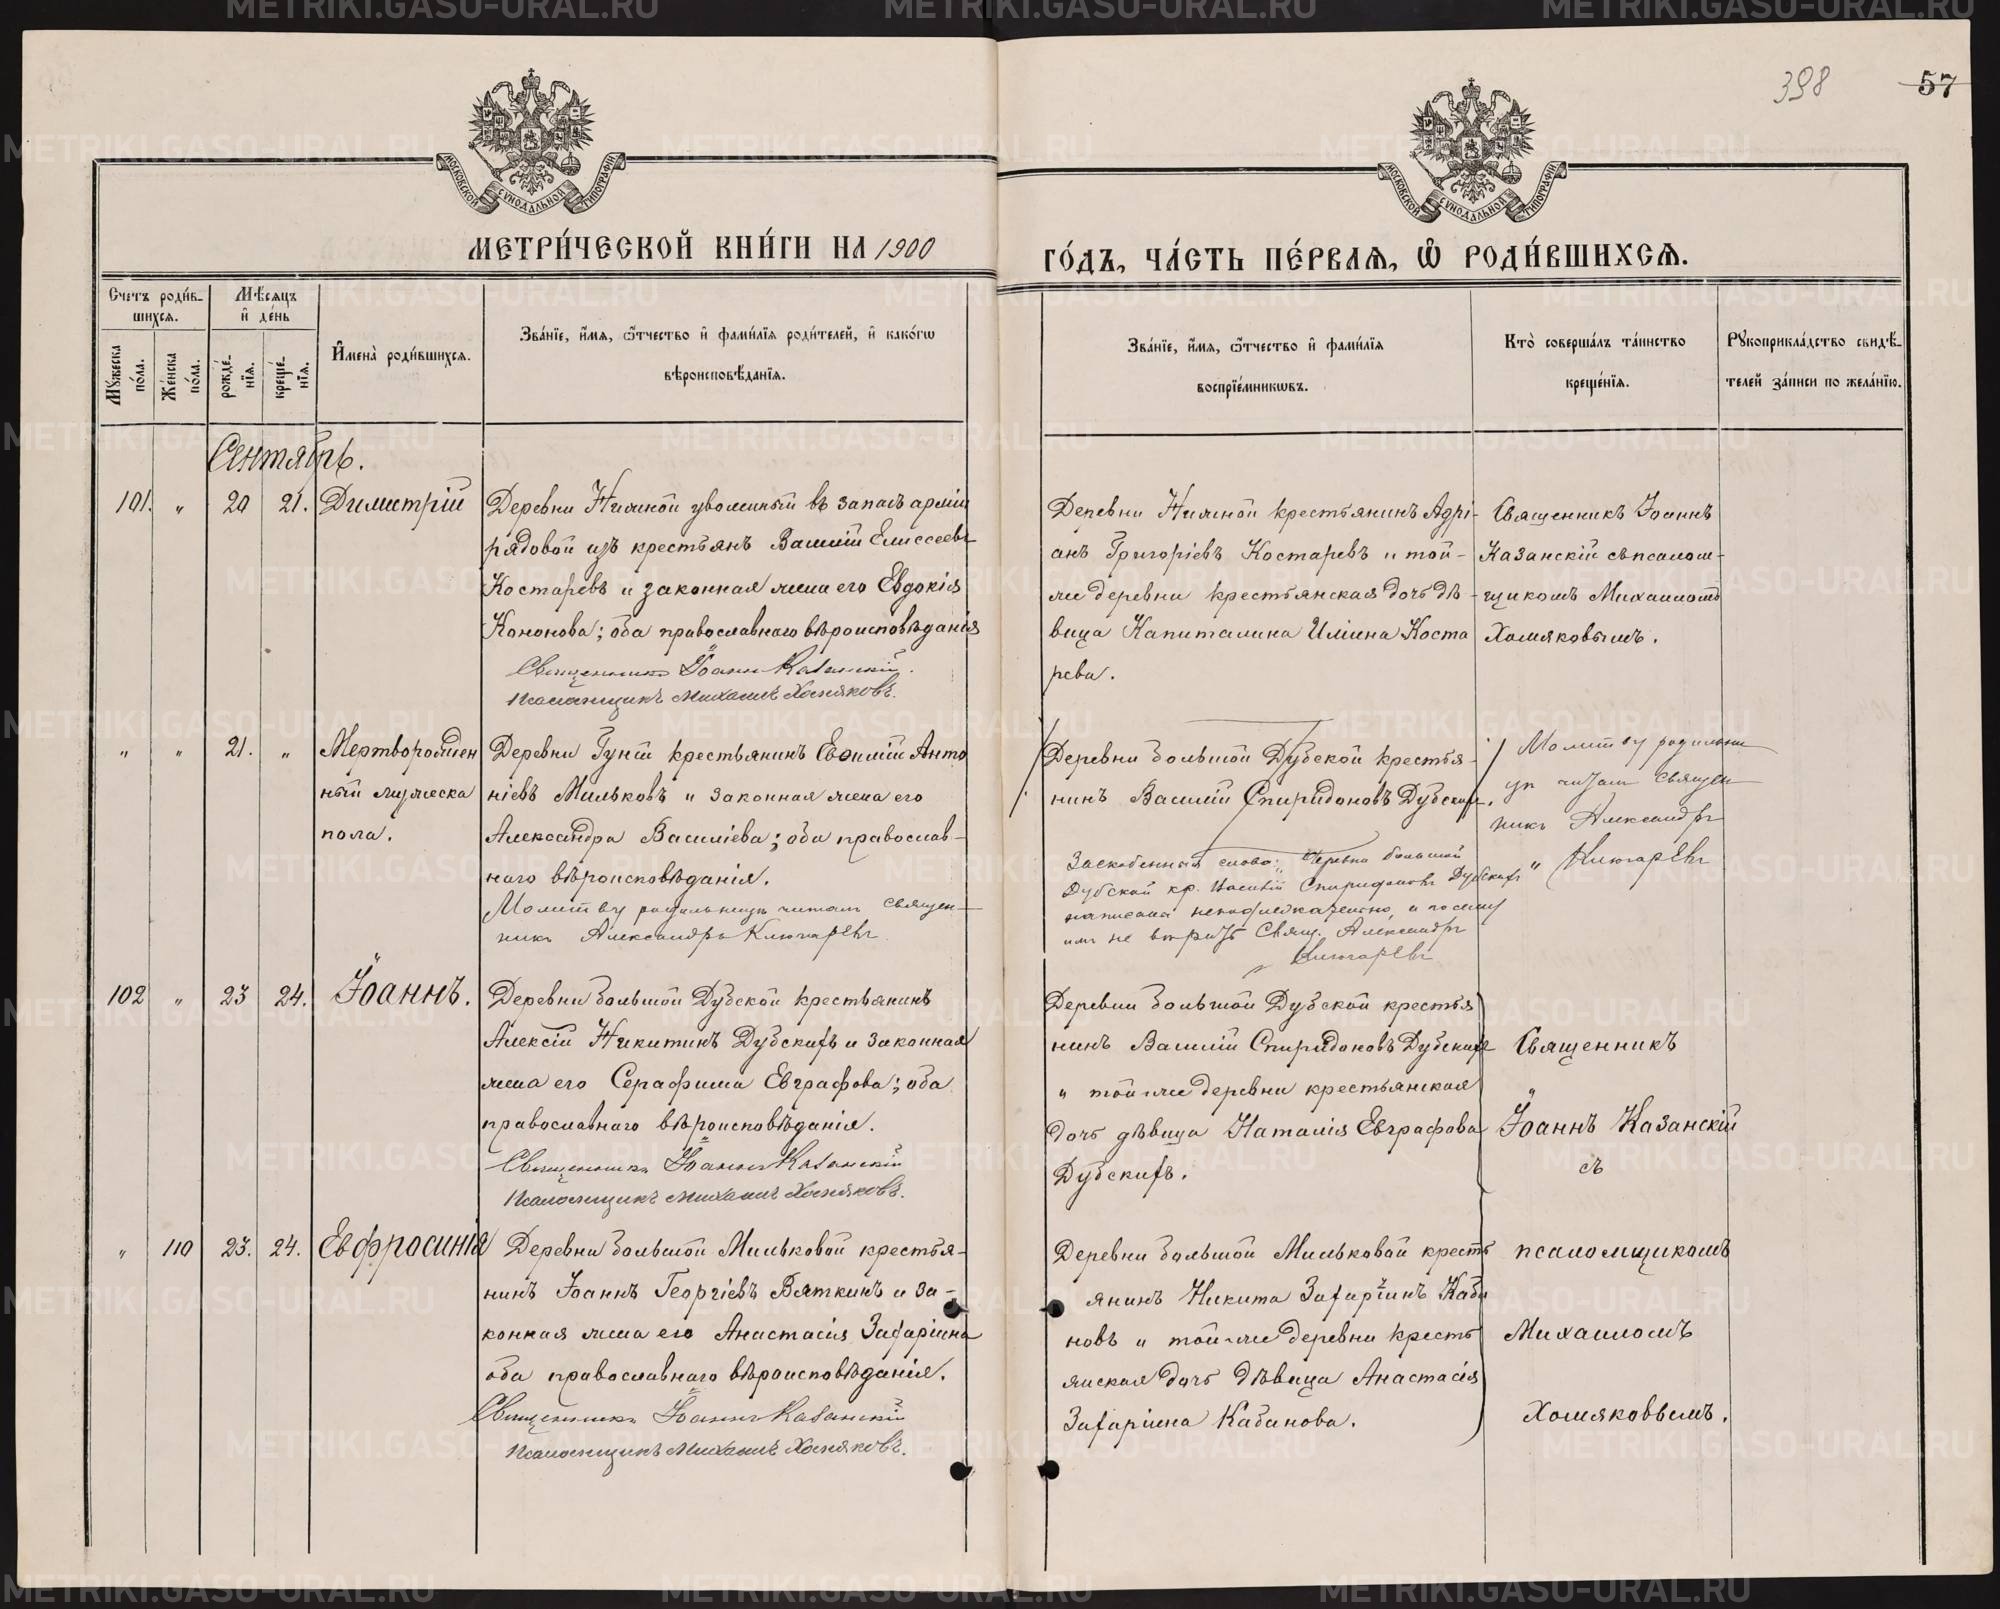 398
57
МЕТРИ́ЧЕСКОЙ КНИ́ГИ НА 1900
ГО́ДЪ, ЧА́СТЬ ПЕ́РВАѦ, Ѡ҆ РОДИ́ВШИХСѦ.
МОСКОВСКОЙ СѴНОДАЛЬНОЙ ТИПОГРАФІИ
МОСКОВСКОЙ СѴНОДАЛЬНОЙ ТИПОГРАФІИ
Счетъ роди́вшихсѧ.
Мꙋжеска по́ла.
Же́нска по́ла.
Мѣ́сѧцъ и҆ де́нь
рожде́нїѧ.
креще́нїѧ.
И҆мена̀ роди́вшихсѧ.
Зва́нїе, и҆́мѧ, ѻ҆́тчество и҆ фами́лїѧ роди́телей, и҆ како́гѡ
вѣроисповѣ́данїѧ.
Зва́нїе, и҆́мѧ, ѻ҆́тчество и҆ фами́лїѧ
воспрїе́мникѡвъ.
Кто̀ соверша́лъ та́инство
креще́нїѧ.
Рꙋкоприкла́дство свидѣ́-
телей за́писи по жела́нїю.
Сентябрь.
101. „ 20 21. Димитрій
Деревни Нижной уволенный въ запасъ арміи
рядовой изъ крестьянъ Василій Елисеевъ
Костаревъ и законная жена его Евдокія
Кононова; оба православнаго вѣроисповѣданія
Священникъ Іоаннъ Казанскій.
Псаломщикъ Михаилъ Хомяковъ.
Деревни Нижной крестьянинъ Адрі-
анъ Григоріевъ Костаревъ и той-
же деревни крестьянская дочь дѣ-
вица Капиталина Иліина Коста
рева.
Священникъ Іоаннъ
Казанскій съ псалом-
щикомъ Михаиломъ
Хомяковымъ.
„ „ 21. „ Мертворожден
ный мужеска
пола.
Деревни Гуни крестьянинъ Евѳимій Анто
ніевъ Мильковъ и законная жена его
Александра Василіева; оба православ-
наго вѣроисповѣданія.
Молитву родильницѣ читалъ священ-
никъ Александръ Ключаревъ
Деревни большой Дубской крестья-
нинъ Василій Спиридоновъ Дубскихъ.
Заскобенныя слова: „Деревни большой
Дубской кр. Василій Спиридоновъ Дубскихъ“
написаны неподлежательно, и посему
имъ не вѣрить Свящ. Александръ
Ключаревъ
Молитву родильни
цѣ читалъ священ
никъ Александръ
Ключаревъ
102 „ 23 24. Іоаннъ.
Деревни большой Дубской крестьянинъ
Алексій Никитинъ Дубскихъ и законная
жена его Серафима Евграфова; оба
православнаго вѣроисповѣданія.
Священникъ Іоаннъ Казанскій
Псаломщикъ Михаилъ Хомяковъ.
Деревни большой Дубской крестья
нинъ Василій Спиридоновъ Дубскихъ
и той-же деревни крестьянская
дочь дѣвица Наталія Евграфова
Дубскихъ.
Священникъ
Іоаннъ Казанскій
съ
„ 110 23. 24. Евфросинія
Деревни большой Мильковой крестья-
нинъ Іоаннъ Георгіевъ Вяткинъ и за-
конная жена его Анастасія Захаріина
оба православнаго вѣроисповѣданія.
Священникъ Іоаннъ Казанскій
Псаломщикъ Михаилъ Хомяковъ.
Деревни большой Мильковой кресть
янинъ Никита Захаріинъ Каба
новъ и той-же деревни кресть
янская дочь дѣвица Анастасія
Захаріина Кабанова.
псаломщикомъ
Михаиломъ
Хомяковымъ.
METRIKI.GASO-URAL.RU